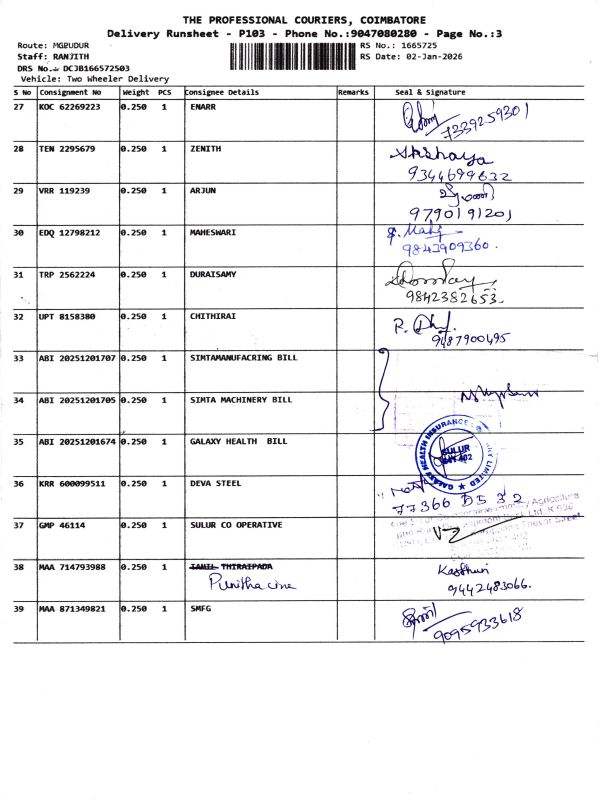 THE PROFESSIONAL COURIERS, COIMBATORE
Delivery Runsheet - P103 - Phone No.:9047080280 - Page No.:3
Route: MGPUDUR
RS No.: 1665725
Staff: RANJITH
RS Date: 02-Jan-2026
DRS No.: DCJB166572503
Vehicle: Two Wheeler Delivery
S No Consignment No Weight PCS Consignee Details Remarks Seal & Signature
27 KOC 62269223 0.250 1 ENARR
7339259301
28 TEN 2295679 0.250 1 ZENITH Akshaya
9344699832
29 VRR 119239 0.250 1 ARJUN
9790191201
30 EDQ 12798212 0.250 1 MAHESWARI
9843909360.
31 TRP 2562224 0.250 1 DURAISAMY
9842382653
32 UPT 8158380 0.250 1 CHITHIRAI
9487900495
33 ABI 20251201707 0.250 1 SIMTAMANUFACRING BILL
34 ABI 20251201705 0.250 1 SIMTA MACHINERY BILL
35 ABI 20251201674 0.250 1 GALAXY HEALTH BILL
GALAXY HEALTH INSURANCE LIMITED
SULUR
36 KRR 600099511 0.250 1 DEVA STEEL
77366 05 32
37 GMP 46114 0.250 1 SULUR CO OPERATIVE
38 MAA 714793988 0.250 1 TAMIL THIRAIPADA Kasthuri
Punitha cine 9442483066.
39 MAA 871349821 0.250 1 SMFG
9095933618